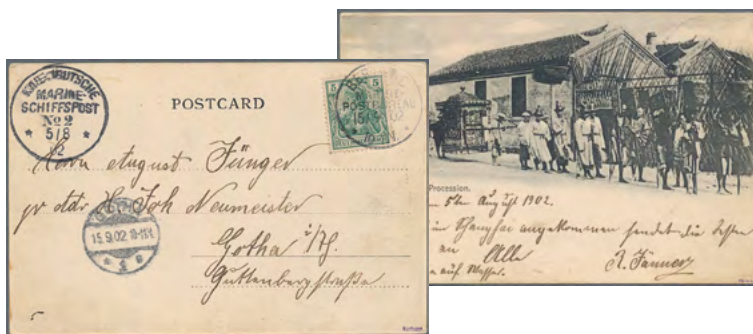 KAIS. DEUTSCHE
MARINE-
SCHIFFSPOST
No 2
5/8
02
POSTCARD
5
15/9 02
Herrn August Jünger
pr Adr H. Joh Neumeister
Gotha i/Th.
Guttenbergstraße
15.9.02
Procession.
5ten August 1902.
in Shanghai angekommen sendet die besten
an Alle
auf Wasser.
R. Jänner